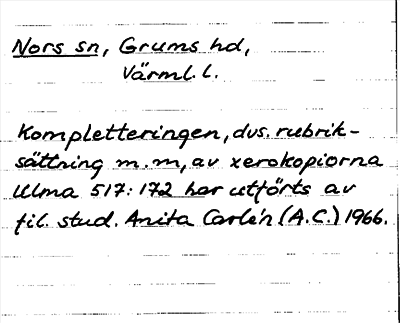 Nors sn, Grums hd,
Värml. l.
Kompletteringen, dvs. rubrik-
sättning m.m, av xerokopiorna
Ulma 517:172 har utförts av
fil. stud. Anita Carlén (A.C.) 1966.